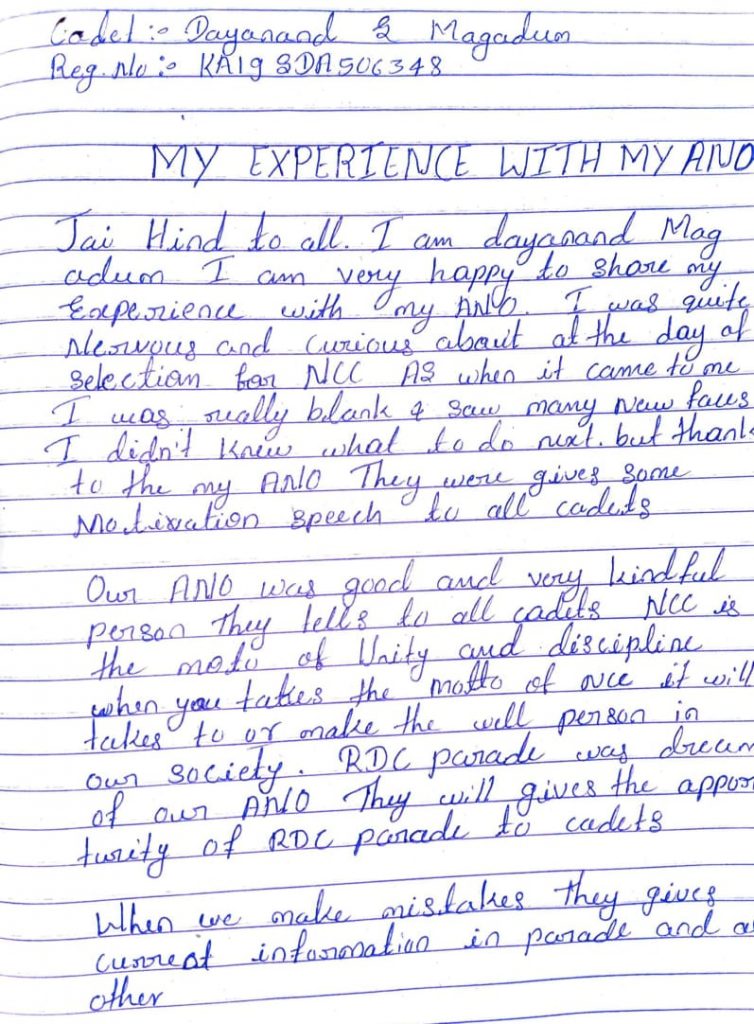 Cadet :- Dayanand S Magadum
Reg. No :- KA19SDA506348
MY EXPERIENCE WITH MY ANO
Jai Hind to all. I am dayanand Mag
adum I am very happy to share my
Experience with my ANO. I was quite
Nervous and Curious about at the day of
selection for NCC AS when it came to me
I was really blank & saw many New faces
I didn't knew what to do next. but thank
to the my ANO They were gives some
Motivation speech to all cadets
Our ANO was good and very kindful
person They tells to all cadets NCC is
the moto of Unity and discipline
when you takes the motto of ncc it will
takes to or make the well person in
our society. RDC parade was dream
of our ANO They will gives the appor
tunity of RDC parade to cadets
When we make mistakes they gives
current information in parade and
other